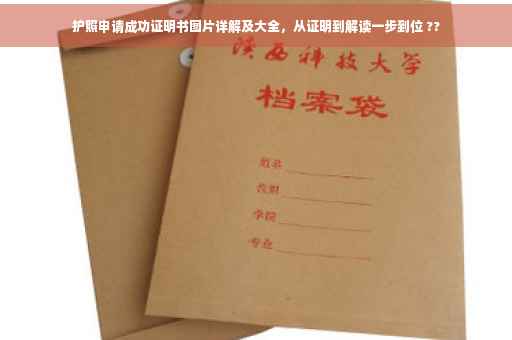 护照申请成功证明书图片详解及大全，从证明到解读一步到位 ??
陕西科技大学
档案袋
姓名
学院
专业